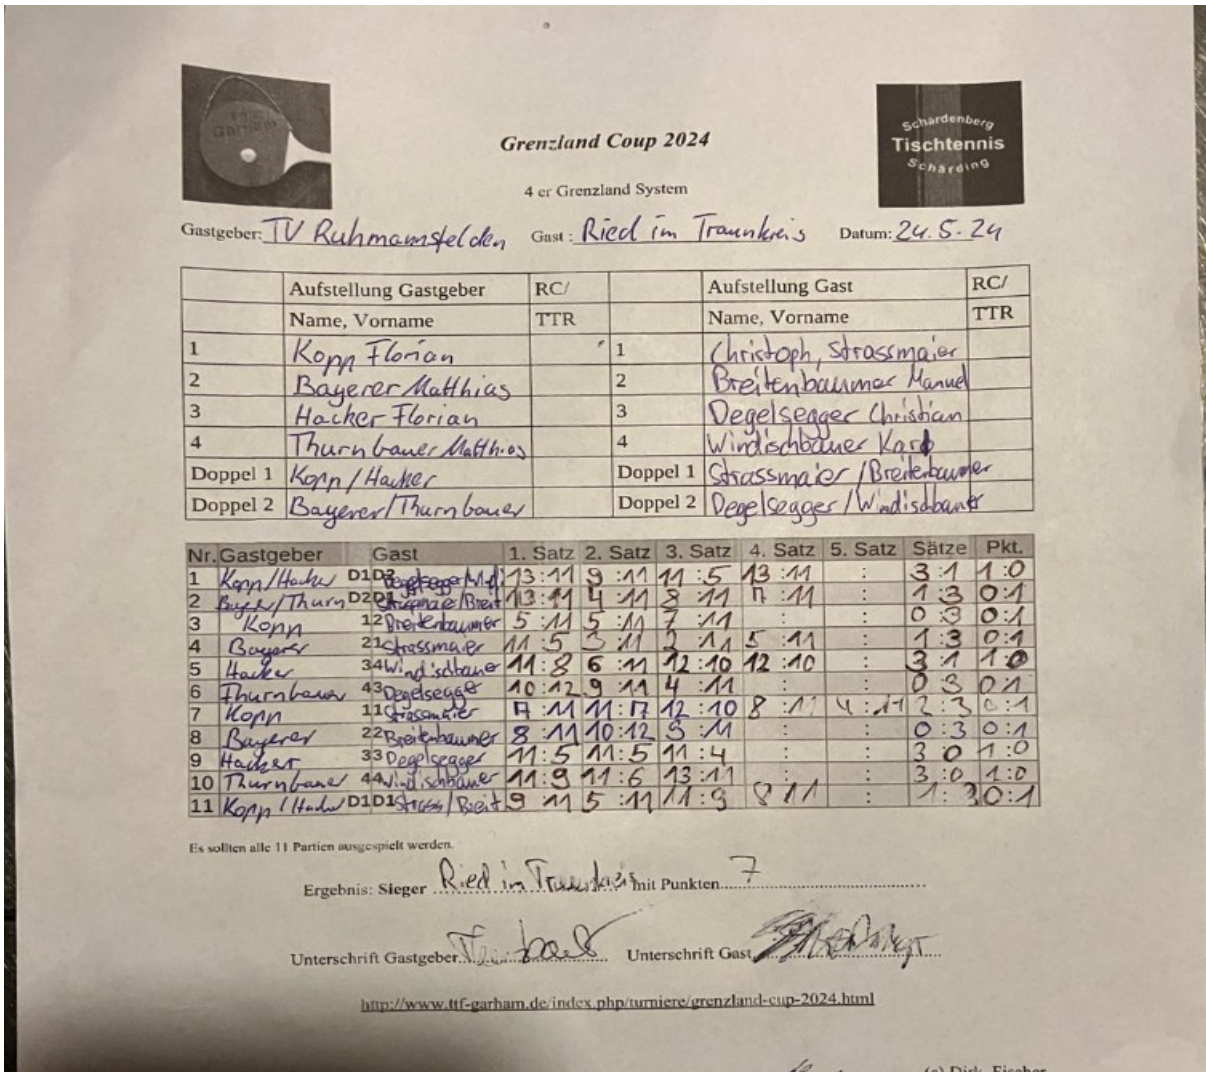 Schardenberg
Tischtennis
Schärding
Grenzland Coup 2024
4 er Grenzland System
Gastgeber: TV Ruhmamsfelden Gast : Ried im Traunkreis Datum: 24.5.24
Aufstellung Gastgeber RC/ Aufstellung Gast RC/
Name, Vorname TTR Name, Vorname TTR
1 Kopp Florian 1 Christoph, Strassmaier
2 Bayerer Matthias 2 Breitenbaumer Manuel
3 Hacker Florian 3 Degelsegger Christian
4 Thurnbauer Matthias 4 Windischbauer Karl
Doppel 1 Kopp/Hacker Doppel 1 Strassmaier/Breitenbaumer
Doppel 2 Bayerer/Thurnbauer Doppel 2 Degelsegger/Windischbauer
Nr. Gastgeber Gast 1. Satz 2. Satz 3. Satz 4. Satz 5. Satz Sätze Pkt.
1 Kopp/Hacker D1 D2 13:11 9:11 11:5 13:11 : 3:1 1:0
2 Bayer/Thurn D2 D1 Strassmaie/Breit 13:11 4:11 8:11 7:11 : 1:3 0:1
3 Kopp 1 2 Breitenbaumer 5:11 5:11 7:11 : : 0:3 0:1
4 Bayerer 2 1 Strassmaier 11:5 3:11 2:11 5:11 : 1:3 0:1
5 Hacker 3 4 Windischbauer 11:8 6:11 12:10 12:10 : 3:1 1:0
6 Thurnbauer 4 3 Degelsegger 10:12 9:11 4:11 : : 0:3 0:1
7 Kopp 1 1 Strassmaier 7:11 11:7 12:10 8:11 4:11 2:3 0:1
8 Bayerer 2 2 Breitenbaumer 8:11 10:12 5:11 : : 0:3 0:1
9 Hacker 3 3 Degelsegger 11:5 11:5 11:4 : : 3:0 1:0
10 Thurnbauer 4 4 Windischbauer 11:9 11:6 13:11 : : 3:0 1:0
11 Kopp/Hacker D1 D1 Strass/Breit 9:11 5:11 11:9 8:11 : 1:3 0:1
Es sollten alle 11 Partien ausgespielt werden.
Ergebnis: Sieger Ried im Traunkreis mit Punkten 7
Unterschrift Gastgeber Unterschrift Gast
http://www.ttf-garham.de/index.php/turniere/grenzland-cup-2024.html
(c) Dirk Fischer